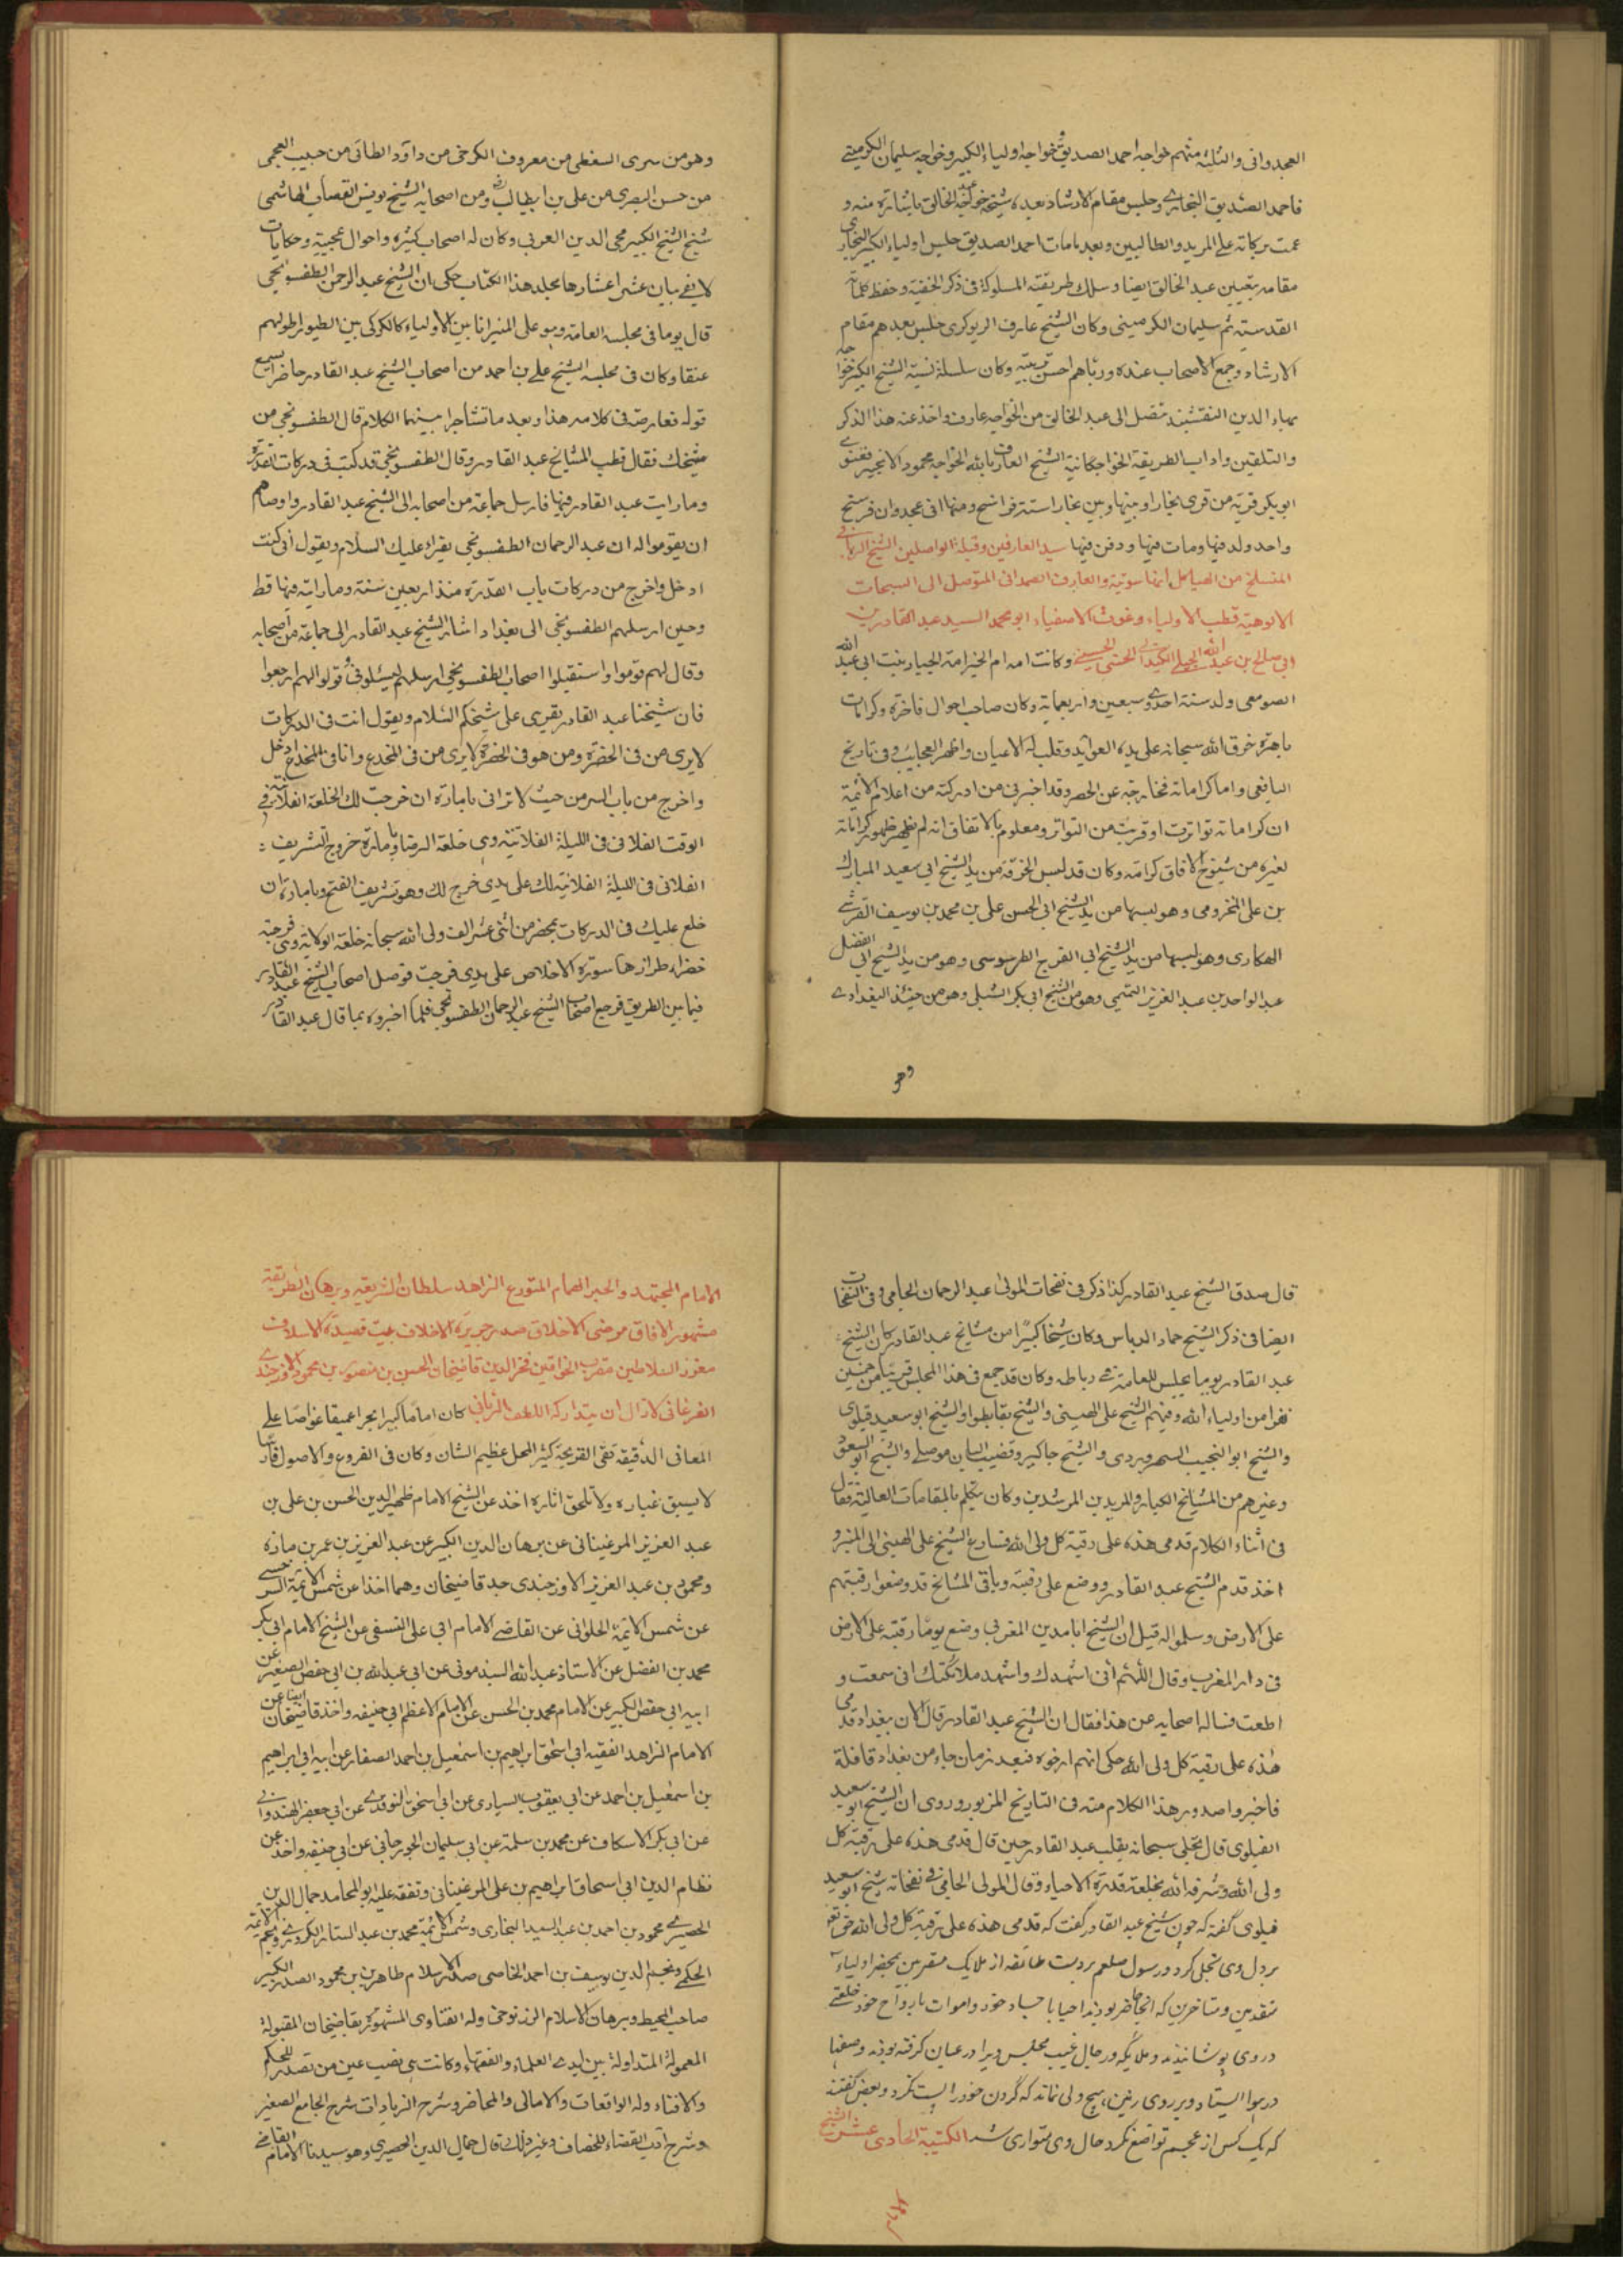 العجدوانى والثلثة منهم خواجه احمد الصديق وخواجه اولياء الكبير وخواجه سليمان الكرمينى
فاحمد الصديق البخارى وجلس مقام الارشاد بعده شيخه خواجه عبد الخالق باشارة منه و
عمت بركاته على المريد والطالبين وبعد ما مات احمد الصديق جلس اولياء الكبير البخارى
مقامه بتعيين عبد الخالق ايضا وسلك طريقته المسلوكة فى ذكر الخفية وحفظ كلماته
القدسية ثم سليمان الكرمينى وكان الشيخ عارف الريوكرى جلس بعدهم مقام
الارشاد وجمع الاصحاب عنده ورباهم احسن تربيته وكان سلسلة نسبة الشيخ الكبير خواجه
بهاء الدين النقشبند تتصل الى عبد الخالق من الخواجه عارف واخذ عنه هذا الذكر
والتلقين واداب الطريقة الخواجگانية الشيخ العارف بالله الخواجه محمود الانجير فغنوى
ابو بكر قرية من قرى بخارا وبينها وبين بخارا ستة فراسخ ومنها الى عجدوان فرسخ
واحد ولد فيها ومات فيها ودفن فيها سيد العارفين وقبلة الواصلين الشيخ الربانى و
المنسلخ من الهياكل الناسوتية والعارف الصمدانى المتوصل الى السبحات
الالوهية قطب الاولياء وغوث الاصفياء ابو محمد السيد عبد القادر بن
ابى صالح بن عبد الله الجيلى الكيلانى الحسنى الحسينى وكانت امه ام الخير امة الجبار بنت ابى عبد الله
الصومعى ولد سنة احدى وسبعين واربعماية وكان صاحب احوال فاخرة وكرامات
باهرة خرق الله سبحانه على يده العوايد وقلب له الاعيان واظهر العجايب وفى تاريخ
اليافعى واما كراماته فخارجة عن الحصر وقد اخبرنى من ادركته من اعلام الائمة
ان كراماته تواترت او قربت من التواتر ومعلوم بالاتفاق انه لم يظهر ظهور كراماته
لغيره من شيوخ الافاق كرامته وكان قد لبس الخرقة من يد الشيخ ابى سعيد المبارك
بن على المخرومى وهو لبسها من يد الشيخ ابى الحسن على بن محمد بن يوسف القرشى
الهكارى وهو لبسها من يد الشيخ ابى الفرج الطرسوسى وهو من يد الشيخ ابى الفضل
عبد الواحد بن عبد العزيز التميمى وهو من الشيخ ابى بكر الشبلى وهو من جنيد البغدادى
وهو
وهو من سرى السقطى من معروف الكرخى من داود الطائى من حبيب العجمى
من حسن البصرى من على بن ابيطالب رض ومن اصحابه الشيخ يونس القصاب الهاشمى
شيخ الشيخ الكبير محى الدين العربى وكان له اصحاب كثيرة واحوال عجيبة وحكايات
لا يفى ببيان عشر اعشارها مجلد هذا الكتاب حكى ان الشيخ عبد الرحمن الطفسونجى
قال يوما فى مجلسه العامة وهو على المنبر انا بين الاولياء كالكركى بين الطيور اطولهم
عنقا وكان فى مجلسه الشيخ على بن احمد من اصحاب الشيخ عبد القادر حاضرا يسمع
قوله فعارضه فى كلامه هذا وبعد ما تشاجرا بينهما الكلام قال الطفسونجى من
شيخك فقال قطب المشايخ عبد القادر وقال الطفسونجى قد كنت فى دركات القدرة
وما رايت عبد القادر فيها فارسل جماعة من اصحابه الى الشيخ عبد القادر واوصاهم
ان يقوموا له ان عبد الرحمان الطفسونجى يقراء عليك السلام ويقول انى كنت
ادخل واخرج من دركات باب القدرة منذ اربعين سنة وما رايته فيها قط
وحين ارسلهم الطفسونجى الى بغداد اشار الشيخ عبد القادر الى جماعة من اصحابه
وقال لهم قوموا واستقبلوا اصحاب الطفسونجى ارسلهم ليسئلونى قولوا لهم ارجعوا
فان شيخنا عبد القادر يقرى على شيخكم السلام ويقول انت فى الدركات
لا يرى من فى الحضرة ومن هو فى الحضرة لا يرى من فى المخدع وانا فى المخدع ادخل
واخرج من باب السر من حيث لا ترانى بامارة ان خرجت لك الخلعة الفلانية فى
الوقت الفلانى فى الليلة الفلانية وهى خلعة الرضا وبامارة خروج التشريف
الفلانى فى الليلة الفلانية لك على يدى خرج لك وهو تشريف الفتح وبامارة ان
خلع عليك فى الدركات بمحضر من اثنى عشر الف ولى الله سبحانه خلعة الولاية وهى فرجية
خضراء طرازها سورة الاخلاص على يدى فرجت فوصل اصحاب الشيخ عبد القادر
فيما بين الطريق فرجع اصحاب الشيخ عبد الرحمان الطفسونجى فلما اخبروه بما قال عبد القادر
قال صدق الشيخ عبد القادر كذا ذكر فى نفحات المولى عبد الرحمان الجامى وفى النفحات
ايضا فى ذكر الشيخ حماد الدباس وكان شيخا كبيرا من مشايخ عبد القادر كان الشيخ
عبد القادر يوما يجلس للعامة فى رباطه وكان قد جمع فى هذا المجلس قريبا من خمسين
نفرا من اولياء الله وفيهم الشيخ على الهيتى والشيخ بقا بطوا والشيخ ابو سعيد قيلوى
والشيخ ابو النجيب السهروردى والشيخ جاكير وقضيب البان موصلى والشيخ ابو السعود
وغيرهم من المشايخ الكبار والمريدين المرشدين وكان يتكلم بالمقامات العالية فقال
فى اثناء الكلام قدمى هذه على رقبة كل ولى الله فسارع الشيخ على الهيتى الى المنبر و
اخذ قدم الشيخ عبد القادر ووضع على رقبته وباقى المشايخ قد وضعوا رقبتهم
على الارض وسلموا له قيل ان الشيخ ابا مدين المغربى وضع يوما رقبته على الارض
فى دار المغرب وقال اللهم انى اشهدك واشهد ملائكتك انى سمعت و
اطعت فساله اصحابه عن هذا فقال ان الشيخ عبد القادر قال الان ببغداد قدمى
هذه على رقبة كل ولى الله حكى انهم ارخوه فبعد زمان جاء من بغداد قافلة
فاخبروا صدور هذا الكلام منه فى التاريخ المزبور وروى ان الشيخ ابو سعيد
القيلوى قال تجلى سبحانه بقلب عبد القادر حين قال قدمى هذه على رقبة كل
ولى الله وشرفه الله بخلعة قدرة الاحياء وقال المولى الجامى فى نفحاته شيخ ابو سعيد
قيلوى گفته كه چون شيخ عبد القادر گفت كه قدمى هذه على رقبة كل ولى الله حق تعه
بر دل وى تجلى كرد ورسول صلعم بر دست طائفه از ملايك مقربين بمحضر اولياء
متقدمين ومتاخرين كه انجا حاضر بودند احيا با جساد خود واموات بارواح خود خلعتى
در وى پوشانيدند وملايكه ورجال غيب مجلس ويرا در عيان گرفته بودند وصفها
در هوا ايستاد وبر روى زمين هيچ ولى نماند كه گردن خود را پست نكرد وبعض گفتند
كه يك كس از عجم تواضع نكرد حال وى متوارى شد الكتيبة الحادى عشر الشيخ
الامام
الامام المجتهد والحبر الهمام المتورع الزاهد سلطان الشريعة وبرهان الطريقة
مشهور الافاق مرضى الاخلاق صدر جريدة الاخلاف بيت قصيدة الاسلاف
معزز السلاطين مقرب الخواقين فخر الدين قاضيخان الحسن بن منصور بن محمود الاوزجندى
الفرغانى لازال ان يتداركه اللطف الربانى كان اماما كبيرا بحرا عميقا غواصا على
المعانى الدقيقة نقى القريحة كثير المحل عظيم الشان وكان فى الفروع والاصول فارسا
لا يسبق غباره ولا تلحق اثاره اخذ عن الشيخ الامام ظهير الدين الحسن بن على بن
عبد العزيز المرغينانى عن برهان الدين الكبير عن عبد العزيز بن عمر بن مازه
ومحمود بن عبد العزيز الاوزجندى جد قاضيخان وهما اخذا عن شمس الائمة السرخسى
عن شمس الائمة الحلوانى عن القاضى الامام ابى على النسفى عن الشيخ الامام ابى بكر
محمد بن الفضل عن الاستاذ عبد الله السبذمونى عن ابى عبد الله بن ابى حفص الصغير عن
ابيه ابى حفص الكبير عن الامام محمد بن الحسن عن الامام الاعظم ابى حنيفه واخذ قاضيخان ايضا عن
الامام الزاهد الفقيه ابى اسحق ابراهيم بن اسمعيل بن احمد الصفار عن ابيه ابى ابراهيم
بن اسمعيل بن احمد عن ابى يعقوب السيارى عن ابى اسحق النوقدى عن ابى جعفر الهندوانى
عن ابى بكر الاسكاف عن محمد بن سلمة عن ابى سليمان الجورجانى عن ابى حنيفه واخذ عن
نظام الدين ابى اسحاق ابراهيم بن على المرغينانى وتفقه عليه ابو المحامد جمال الدين
الحصيرى محمود بن احمد بن عبد السيد البخارى وشمس الائمة محمد بن عبد الستار الكردرى ونجم الائمة
الحكمى ونجم الدين يوسف بن احمد الخاصى صدر الاسلام طاهر بن محمود الصدر الكبير
صاحب المحيط وبرهان الاسلام الزرنوجى وله الفتاوى المشهورة بقاضيخان المقبولة
المعمولة المتداولة بين ايدى العلماء والفقهاء وكانت هى نصب عين من تصدر للحكم
والافتاء وله الواقعات والامالى والمحاضر وشرح الزيادات شرح الجامع الصغير
وشرح ادب القضاء للخصاف وغير ذلك قال جمال الدين الحصيرى وهو سيدنا القاضى الامام